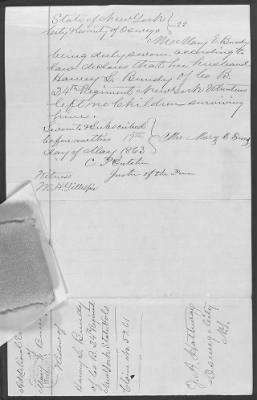 State of New York } SS
City & County of Oswego
Mrs Mary E Bundy
being duly sworn according to
law declares that her husband
Harvey L. Bundy of Co B.
24th Regiment New York Volunteers
left no Children surviving
him.
Sworn to & Subscribed
before me this 19th } Mrs Mary E Bundy
day of May 1863
Justice of the Peace
Witness
W. H. Gillespie
Mary E.
Widow of
Harvey L. Bundy
of Co B. 24th Regiment
New York State Vols.
Claim No 5261
Oswego City
N.Y.